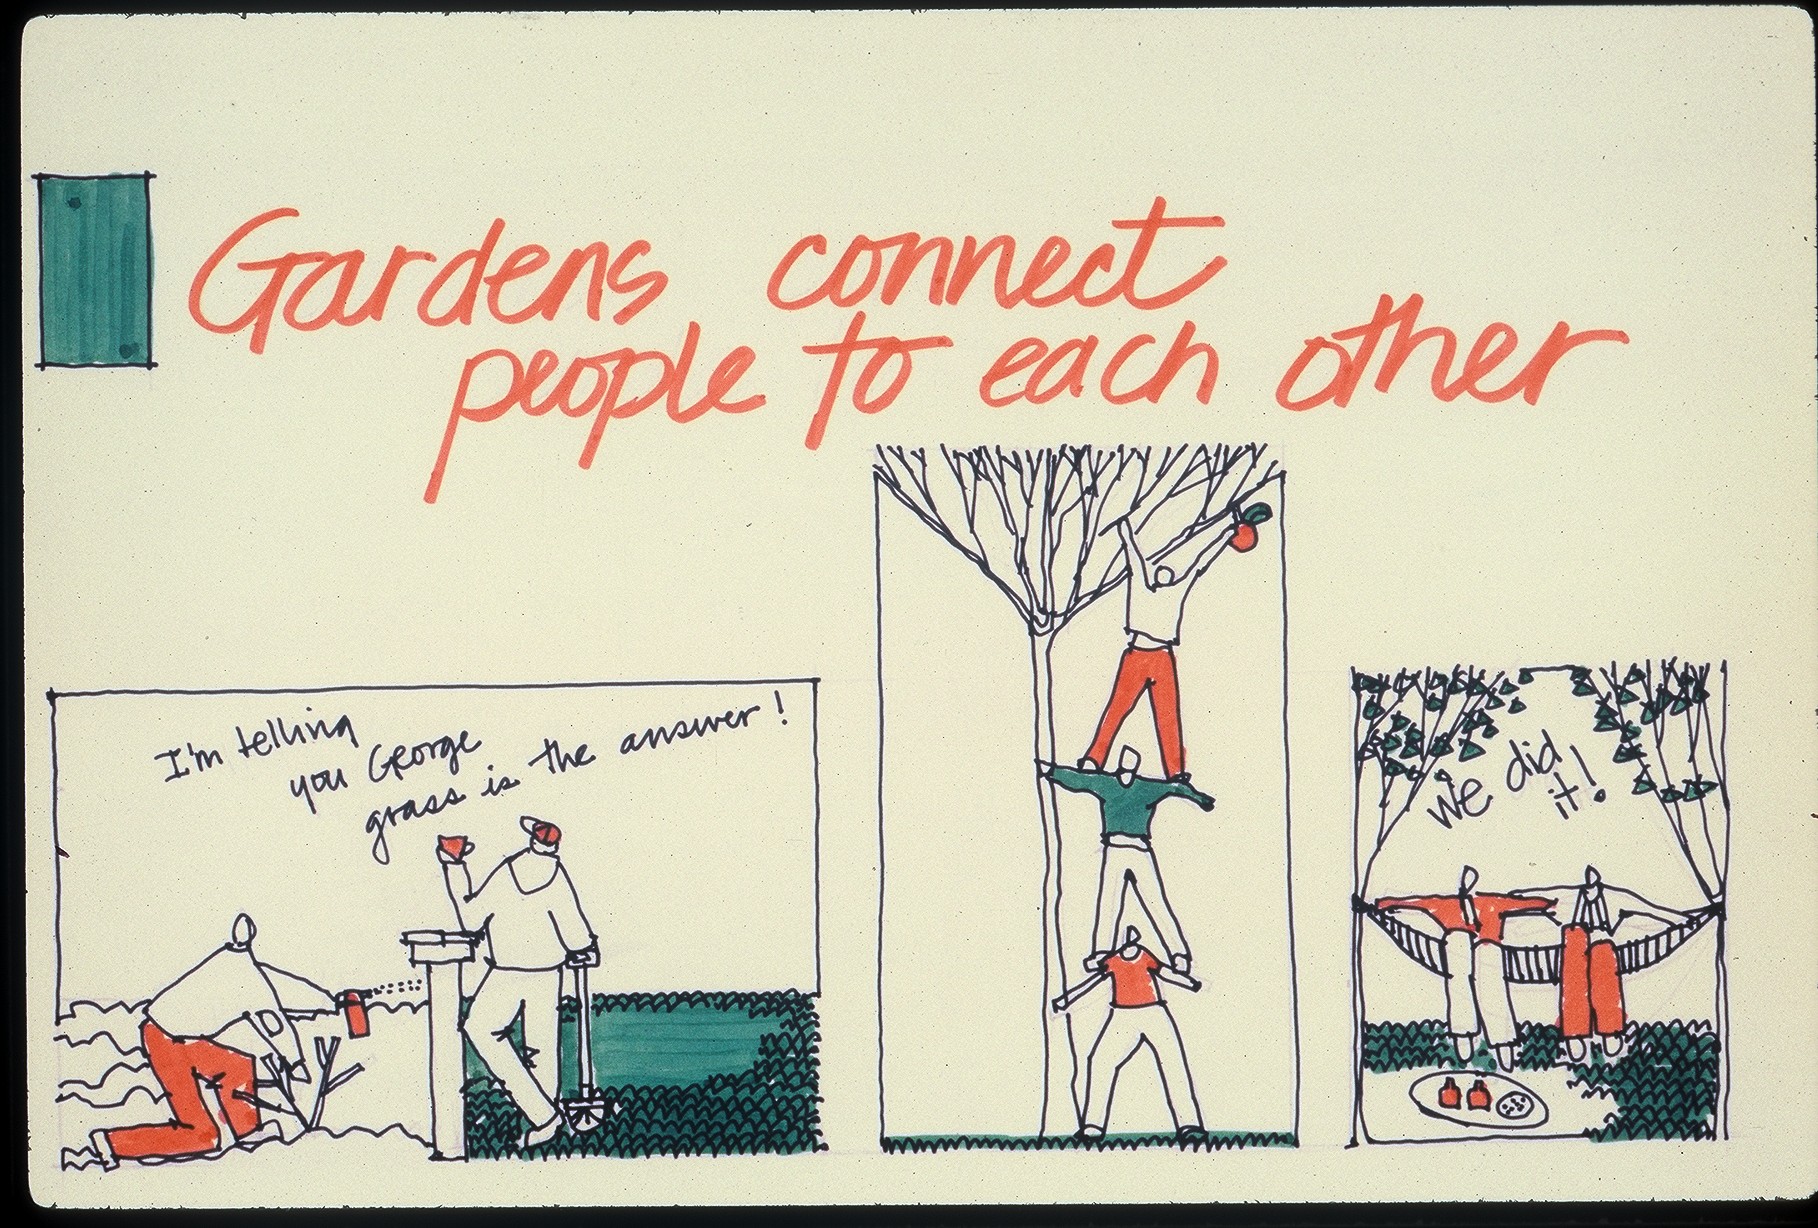 Gardens connect
people to each other
I'm telling
you George
grass is the answer!
we did
it!